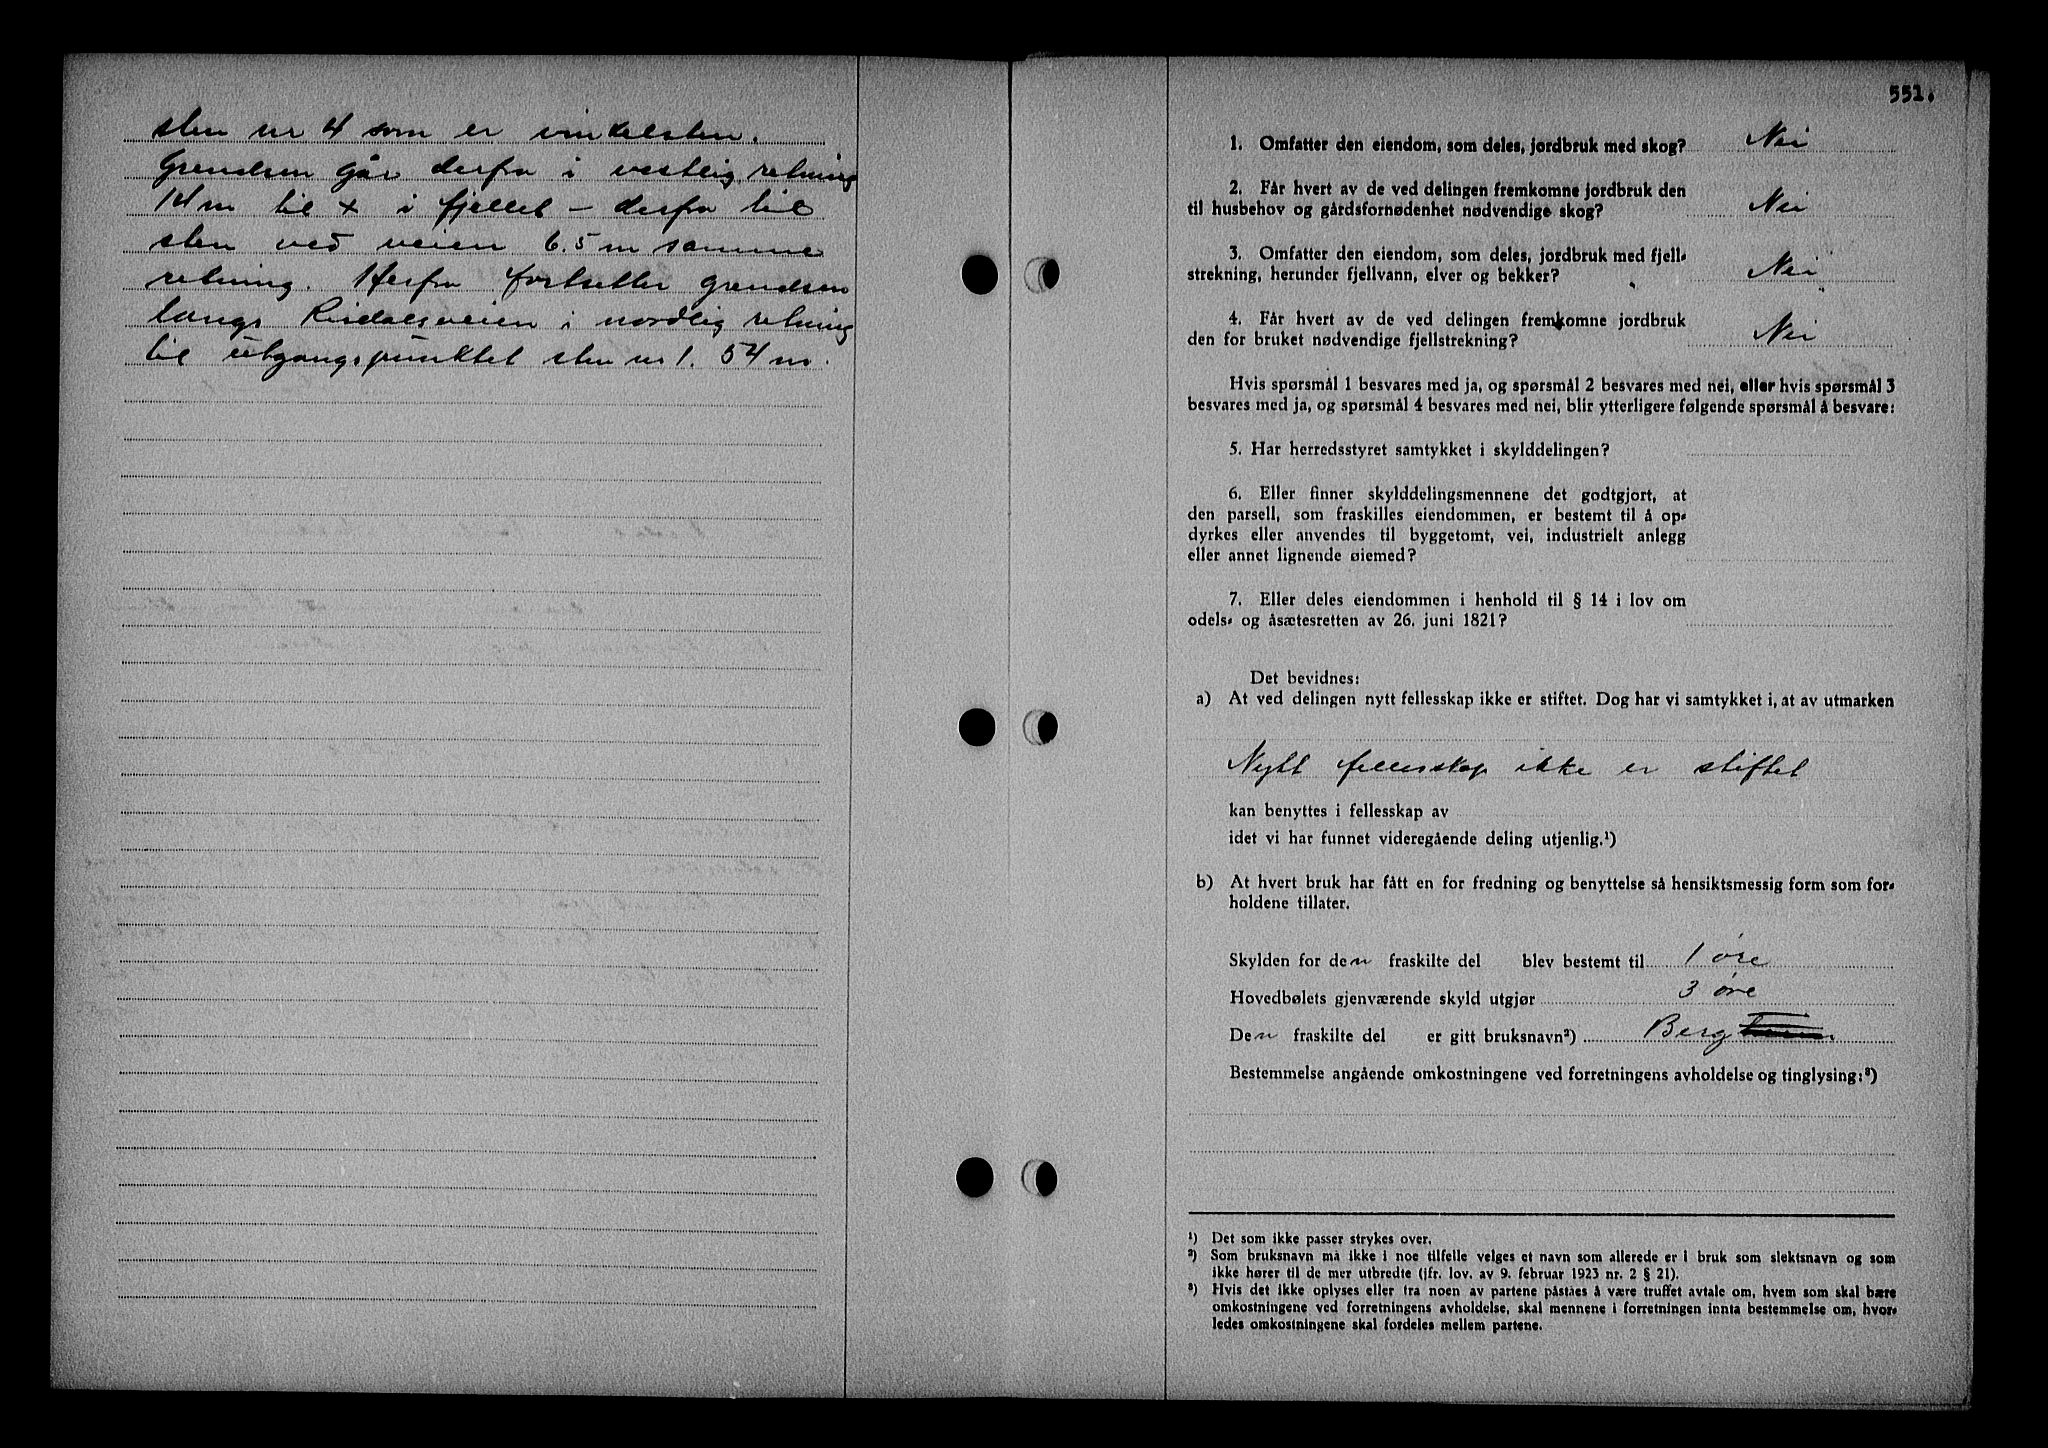 sten nr 4 som er vinkelsten.
Grendsen går derfra i vestlig retning
14 m til x i fjellet – derfra til
sten ved veien 6.5 m samme
retning. Herfra fortsetter grendsen
langs Risdalsveien i nordlig retning
til utgangspunktet sten nr 1. 54 m.
551.
1. Omfatter den eiendom, som deles, jordbruk med skog? Nei
2. Får hvert av de ved delingen fremkomne jordbruk den
til husbehov og gårdsfornødenhet nødvendige skog? Nei
3. Omfatter den eiendom, som deles, jordbruk med fjell-
strekning, herunder fjellvann, elver og bekker? Nei
4. Får hvert av de ved delingen fremkomne jordbruk
den for bruket nødvendige fjellstrekning? Nei
Hvis spørsmål 1 besvares med ja, og spørsmål 2 besvares med nei, eller hvis spørsmål 3
besvares med ja, og spørsmål 4 besvares med nei, blir ytterligere følgende spørsmål å besvare:
5. Har herredsstyret samtykket i skylddelingen?
6. Eller finner skylddelingsmennene det godtgjort, at
den parsell, som fraskilles eiendommen, er bestemt til å op-
dyrkes eller anvendes til byggetomt, vei, industrielt anlegg
eller annet lignende øiemed?
7. Eller deles eiendommen i henhold til § 14 i lov om
odels- og åsætesretten av 26. juni 1821?
Det bevidnes:
a) At ved delingen nytt fellesskap ikke er stiftet. Dog har vi samtykket i, at av utmarken
Nytt fellesskap ikke er stiftet
kan benyttes i fellesskap av
idet vi har funnet videregående deling utjenlig.¹)
b) At hvert bruk har fått en for fredning og benyttelse så hensiktsmessig form som for-
holdene tillater.
Skylden for den fraskilte del blev bestemt til 1 øre
Hovedbølets gjenværende skyld utgjør 3 øre
Den fraskilte del er gitt bruksnavn²) Berg
Bestemmelse angående omkostningene ved forretningens avholdelse og tinglysing:³)
¹) Det som ikke passer strykes over.
²) Som bruksnavn må ikke i noe tilfelle velges et navn som allerede er i bruk som slektsnavn og som
ikke hører til de mer utbredte (jfr. lov. av 9. februar 1923 nr. 2 § 21).
³) Hvis det ikke oplyses eller fra noen av partene påstås å være truffet avtale om, hvem som skal bære
omkostningene ved forretningens avholdelse, skal mennene i forretningen innta bestemmelse om, hvor-
ledes omkostningene skal fordeles mellem partene.